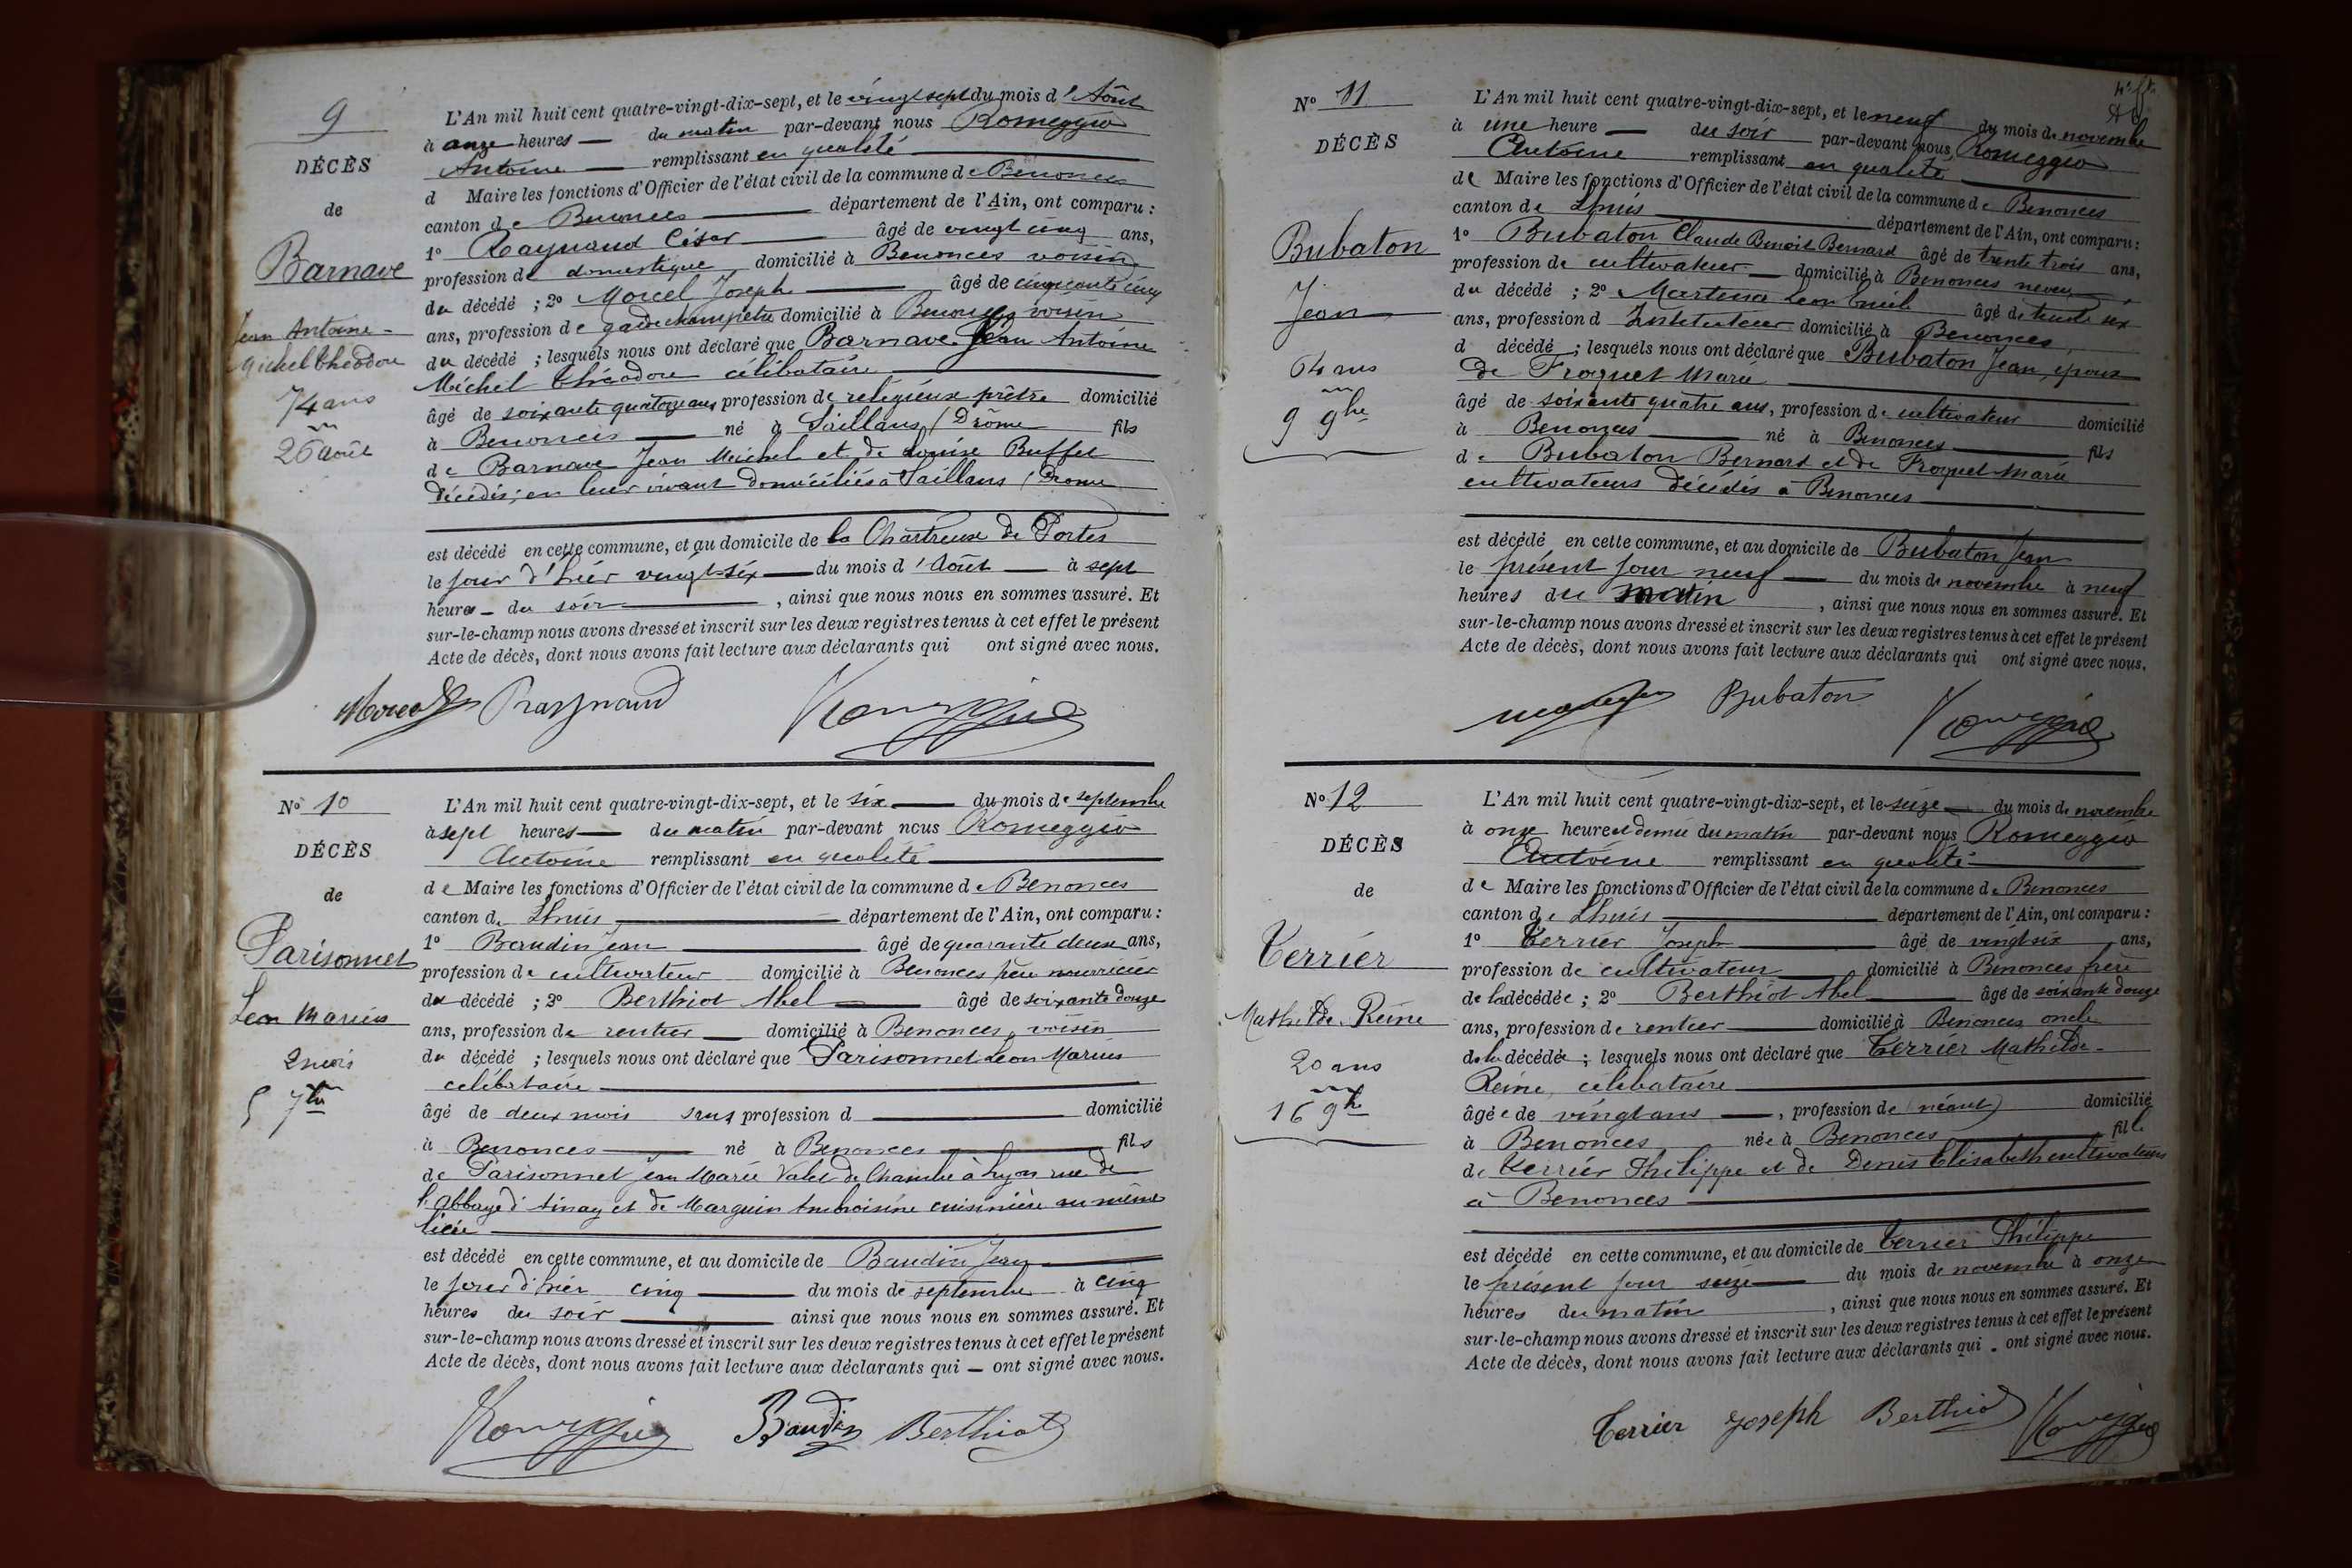 9
DÉCÈS
de
Barnave
Jean Antoine
Michel Théodore
74 ans
26 août
L'An mil huit cent quatre-vingt-dix-sept, et le vingt sept du mois d'Août
à onze heures — du matin par-devant nous Romeggio
Antoine — remplissant en qualité
d Maire les fonctions d'Officier de l'état civil de la commune de Benonces
canton de Benonces — département de l'Ain, ont comparu :
1° Raynaud César — âgé de vingt cinq ans,
profession de domestique domicilié à Benonces voisin
du décédé ; 2° Morcel Joseph — âgé de cinquante cinq
ans, profession de garde champêtre domicilié à Benonces voisin
du décédé ; lesquels nous ont déclaré que Barnave Jean Antoine
Michel Théodore célibataire
âgé de soixante quatorze ans, profession de religieux prêtre domicilié
à Benonces — né à Saillans (Drôme fils
de Barnave Jean Michel et de Louise Buffet
décédés, en leur vivant domiciliés à Saillans (Drome
est décédé en cette commune, et au domicile de la Chartreuse de Portes
le jour d'hier vingt-six — du mois d'Août — à sept
heures — du soir —, ainsi que nous nous en sommes assuré. Et
sur-le-champ nous avons dressé et inscrit sur les deux registres tenus à cet effet le présent
Acte de décès, dont nous avons fait lecture aux déclarants qui ont signé avec nous.
Raynaud Romeggio
N° 10
DÉCÈS
de
Parisonnet
Léon Marius
2 mois
5 7bre
L'An mil huit cent quatre-vingt-dix-sept, et le six — du mois de septembre
à sept heures — du matin par-devant nous Romeggio
Antoine remplissant en qualité
de Maire les fonctions d'Officier de l'état civil de la commune de Benonces
canton de Lhuis — département de l'Ain, ont comparu :
1° Baudin Jean — âgé de quarante deux ans,
profession de cultivateur domicilié à Benonces père nourricier
du décédé ; 2° Berthiot Abel — âgé de soixante douze
ans, profession de rentier — domicilié à Benonces, voisin
du décédé ; lesquels nous ont déclaré que Parisonnet Léon Marius
célibataire
âgé de deux mois sans profession d — domicilié
à Benonces — né à Benonces — fils
de Parisonnet Jean Marie Valet de Chambre à Lyon rue de
l'abbaye d'Ainay et de Marguin Ambroisine cuisinière au même
lieu
est décédé en cette commune, et au domicile de Baudin Jean
le jour d'hier cinq — du mois de septembre à cinq
heures du soir — ainsi que nous nous en sommes assuré. Et
sur-le-champ nous avons dressé et inscrit sur les deux registres tenus à cet effet le présent
Acte de décès, dont nous avons fait lecture aux déclarants qui — ont signé avec nous.
Romeggio Baudin Berthiot
N° 11
DÉCÈS
Bubaton
Jean
64 ans
9 9bre
L'An mil huit cent quatre-vingt-dix-sept, et le neuf du mois de novembre
à une heure — du soir par-devant nous Romeggio
Antoine remplissant en qualité
de Maire les fonctions d'Officier de l'état civil de la commune de Benonces
canton de Lhuis — département de l'Ain, ont comparu :
1° Bubaton Claude Benoit Bernard âgé de trente trois ans,
profession de cultivateur — domicilié à Benonces neveu
du décédé ; 2° Martina Léon âgé de trente six
ans, profession d Instituteur domicilié à Benonces
d décédé ; lesquels nous ont déclaré que Bubaton Jean, époux
de Froquet Marie
âgé de soixante quatre ans, profession de cultivateur domicilié
à Benonces — né à Benonces — fils
de Bubaton Bernard et de Froquet Marie
cultivateurs décédés à Benonces
est décédé en cette commune, et au domicile de Bubaton Jean
le présent jour neuf — du mois de novembre à neuf
heures du matin, ainsi que nous nous en sommes assuré. Et
sur-le-champ nous avons dressé et inscrit sur les deux registres tenus à cet effet le présent
Acte de décès, dont nous avons fait lecture aux déclarants qui ont signé avec nous.
Bubaton Romeggio
N° 12
DÉCÈS
de
Terrier
Mathilde Reine
20 ans
16 9bre
L'An mil huit cent quatre-vingt-dix-sept, et le seize — du mois de novembre
à onze heures et demie du matin par-devant nous Romeggio
Antoine remplissant en qualité
de Maire les fonctions d'Officier de l'état civil de la commune de Benonces
canton de Lhuis — département de l'Ain, ont comparu :
1° Terrier Joseph — âgé de vingt six ans,
profession de cultivateur — domicilié à Benonces frère
de la décédée ; 2° Berthiot Abel — âgé de soixante douze
ans, profession de rentier — domicilié à Benonces oncle
de la décédée ; lesquels nous ont déclaré que Terrier Mathilde
Reine, célibataire
âgée de vingt ans —, profession de (néant) domicilié
à Benonces née à Benonces — fille
de Terrier Philippe et de Denis Elisabeth cultivateurs
à Benonces
est décédé en cette commune, et au domicile de Terrier Philippe
le présent jour seize — du mois de novembre à onze
heures du matin, ainsi que nous nous en sommes assuré. Et
sur-le-champ nous avons dressé et inscrit sur les deux registres tenus à cet effet le présent
Acte de décès, dont nous avons fait lecture aux déclarants qui - ont signé avec nous.
Terrier Joseph Berthiot Romeggio